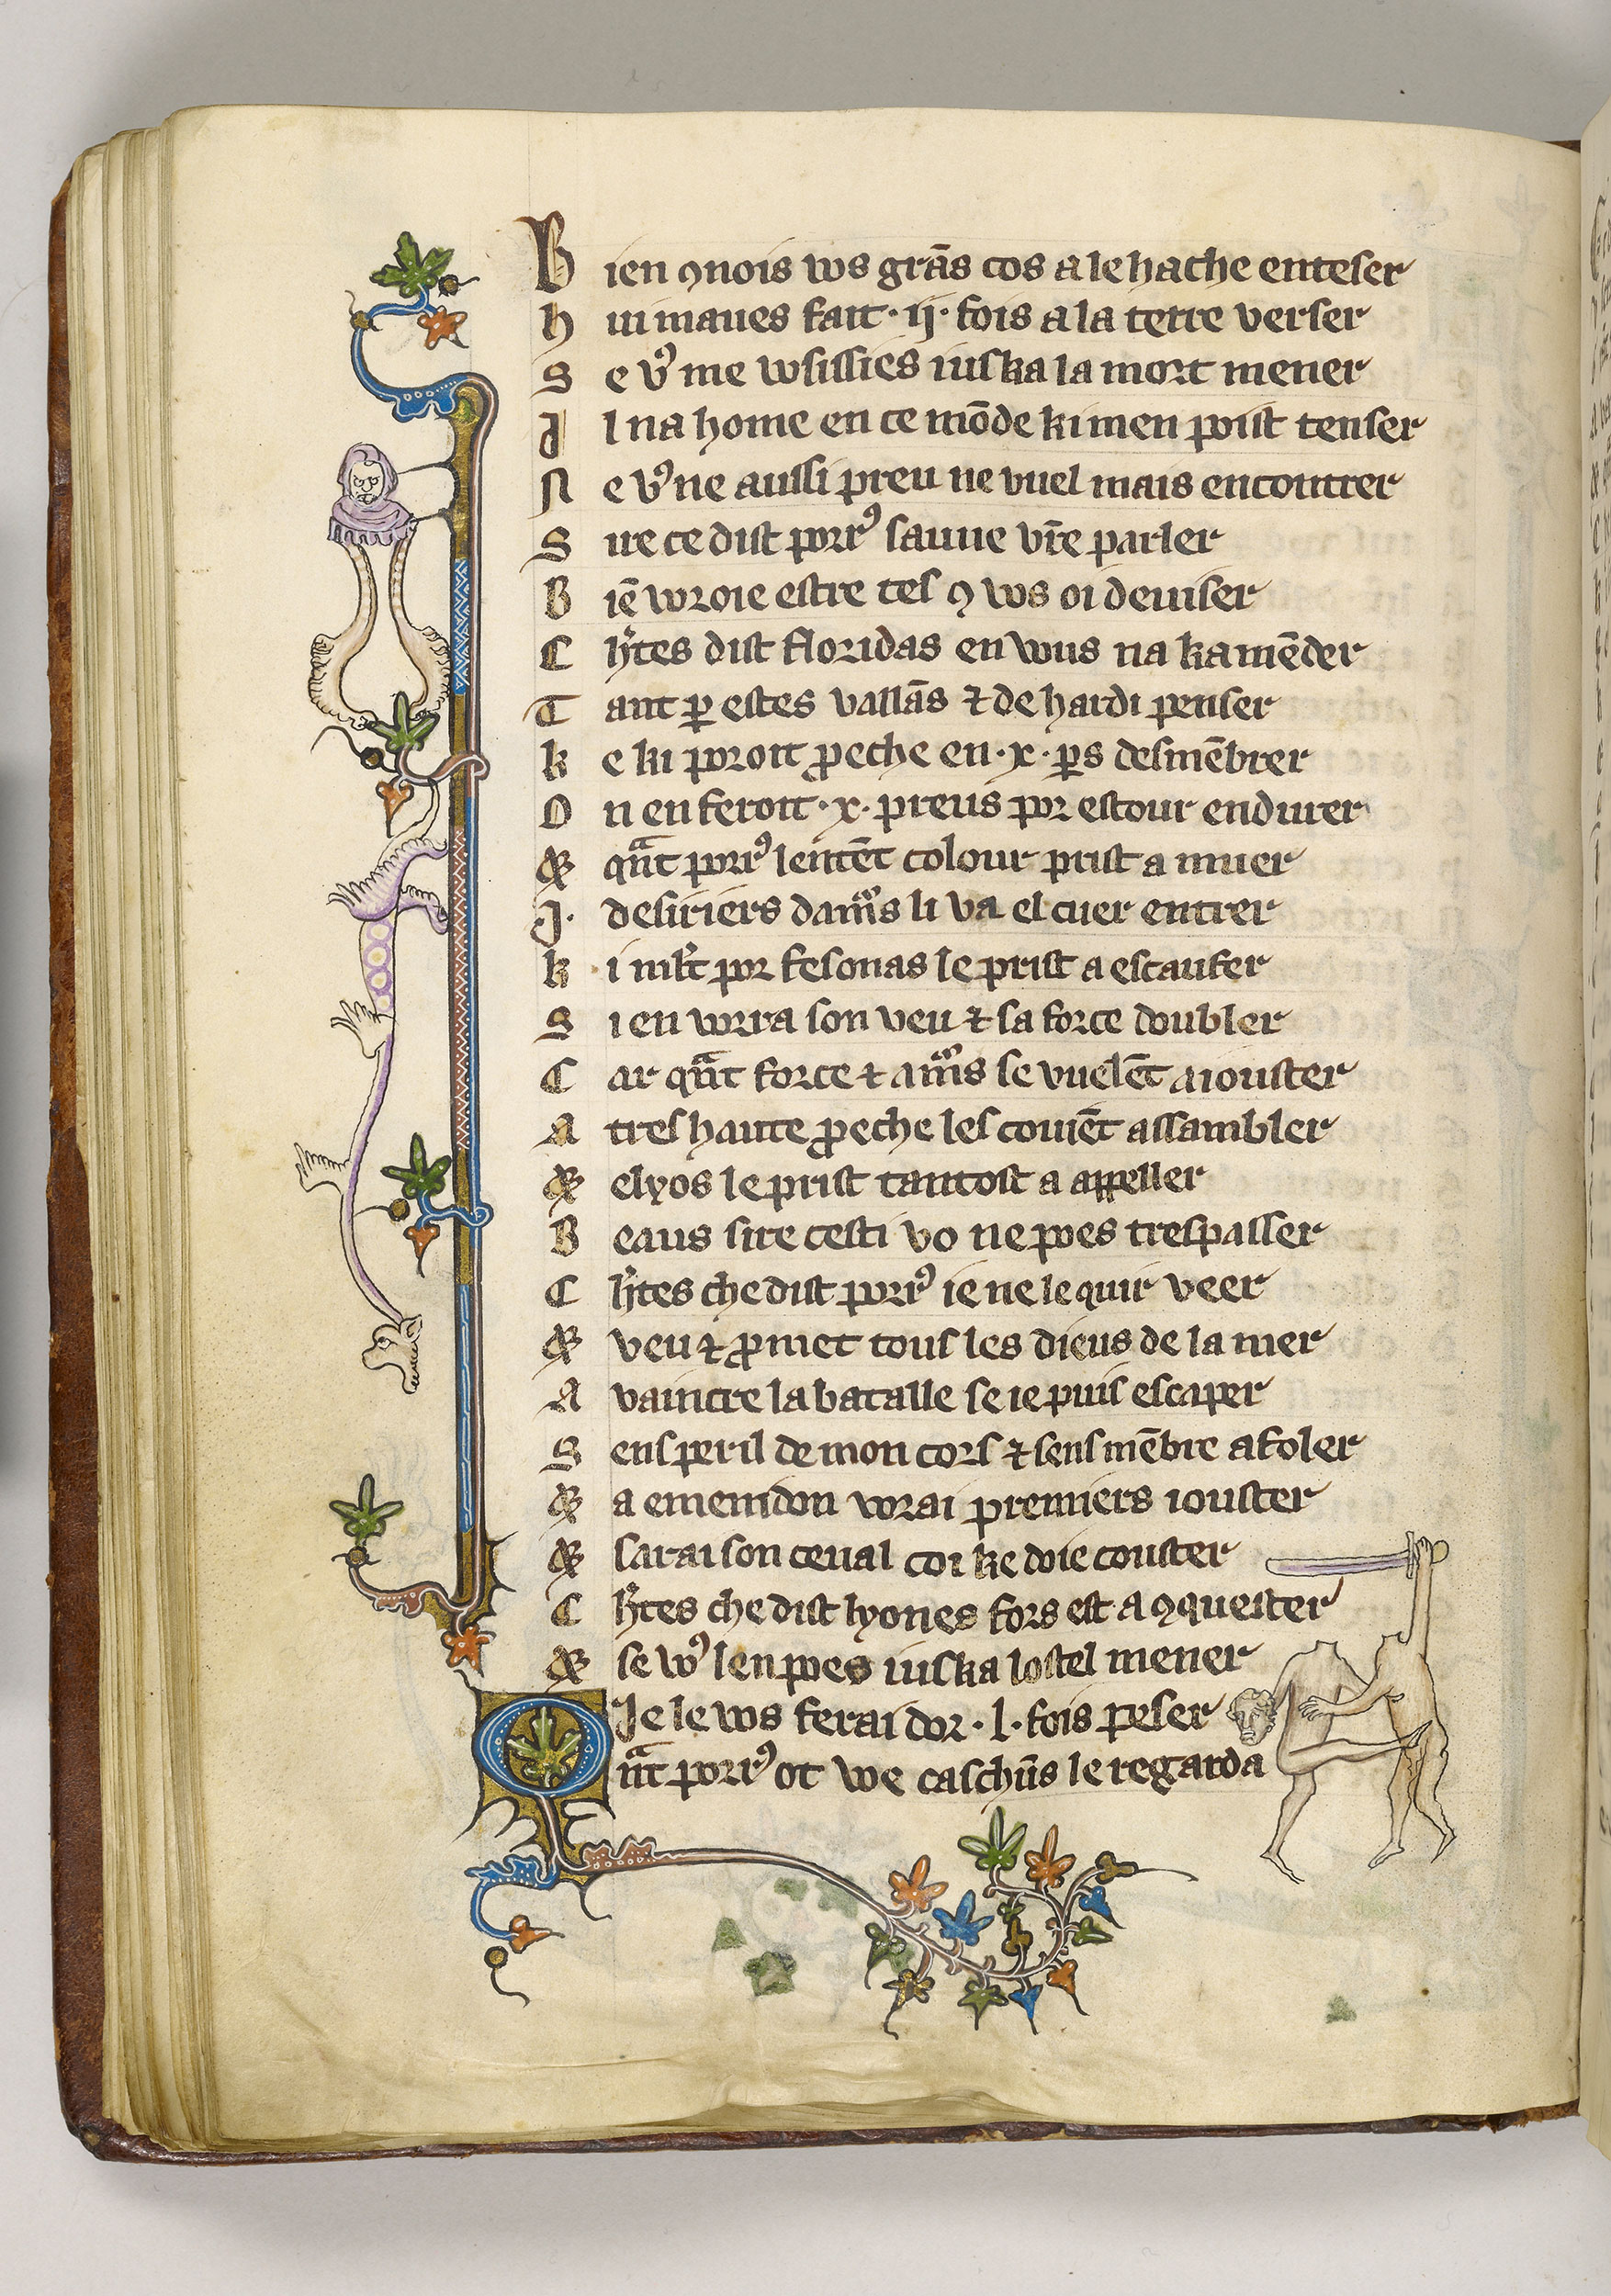 Bien ꝯnois vos grãs cos a le hache enteser
hui maues fait ·ij· fois a la terre verser
Se vꝰ me vosissies iuska la mort mener
Il na home en ce mõde ki men poist tenser
Ne vꝰ ne aussi preu ne vuel mais encontrer
Sire ce dist porrꝰ sauue vr̃e parler
Biẽ vorroie estre tes ꝯ vos oi deuiser
Ch̾tes dist floridas en vous na kamẽder
Tant ꝑ estes vallãs ⁊ de hardi penser
ke ki poroit ꝓeche en ·x· ꝑs desmẽbrer
On en feroit ·x· preus por estour endurer
Et qᷓnt porrꝰ lentẽt colour prist a muer
J· desiriers damo᷑s li va el cuer entrer
ki mlt̾ por fesonas le prist a escaufer
Si en vorra son veu ⁊ sa force doubler
Car qᷓnt force ⁊ amo᷑s se vuelẽt aiouster
A tres haute ꝓeche les couiẽt assambler
Et elyos le prist tantost a appeller
Beaus sire cesti vo ne poes trespasser
Ch̾tes che dist porrꝰ ie ne le quir veer
Et veu ⁊ ꝓmet tous les dieus de la mer
A vaincre la bataille se ie puis escaper
Sens peril de mon cors ⁊ sens mẽbre afoler
Et a emenidon vorai premiers iouster
Et sarai son ceual coi ke doie couster
Ch̾tes che dist lyones fors est a ꝯquester
Et se voꝰ len poes iuska lostel mener
Je le vos ferai dor ·l· fois peser
Qᷓnt porrꝰ ot voe caschũs le regarda